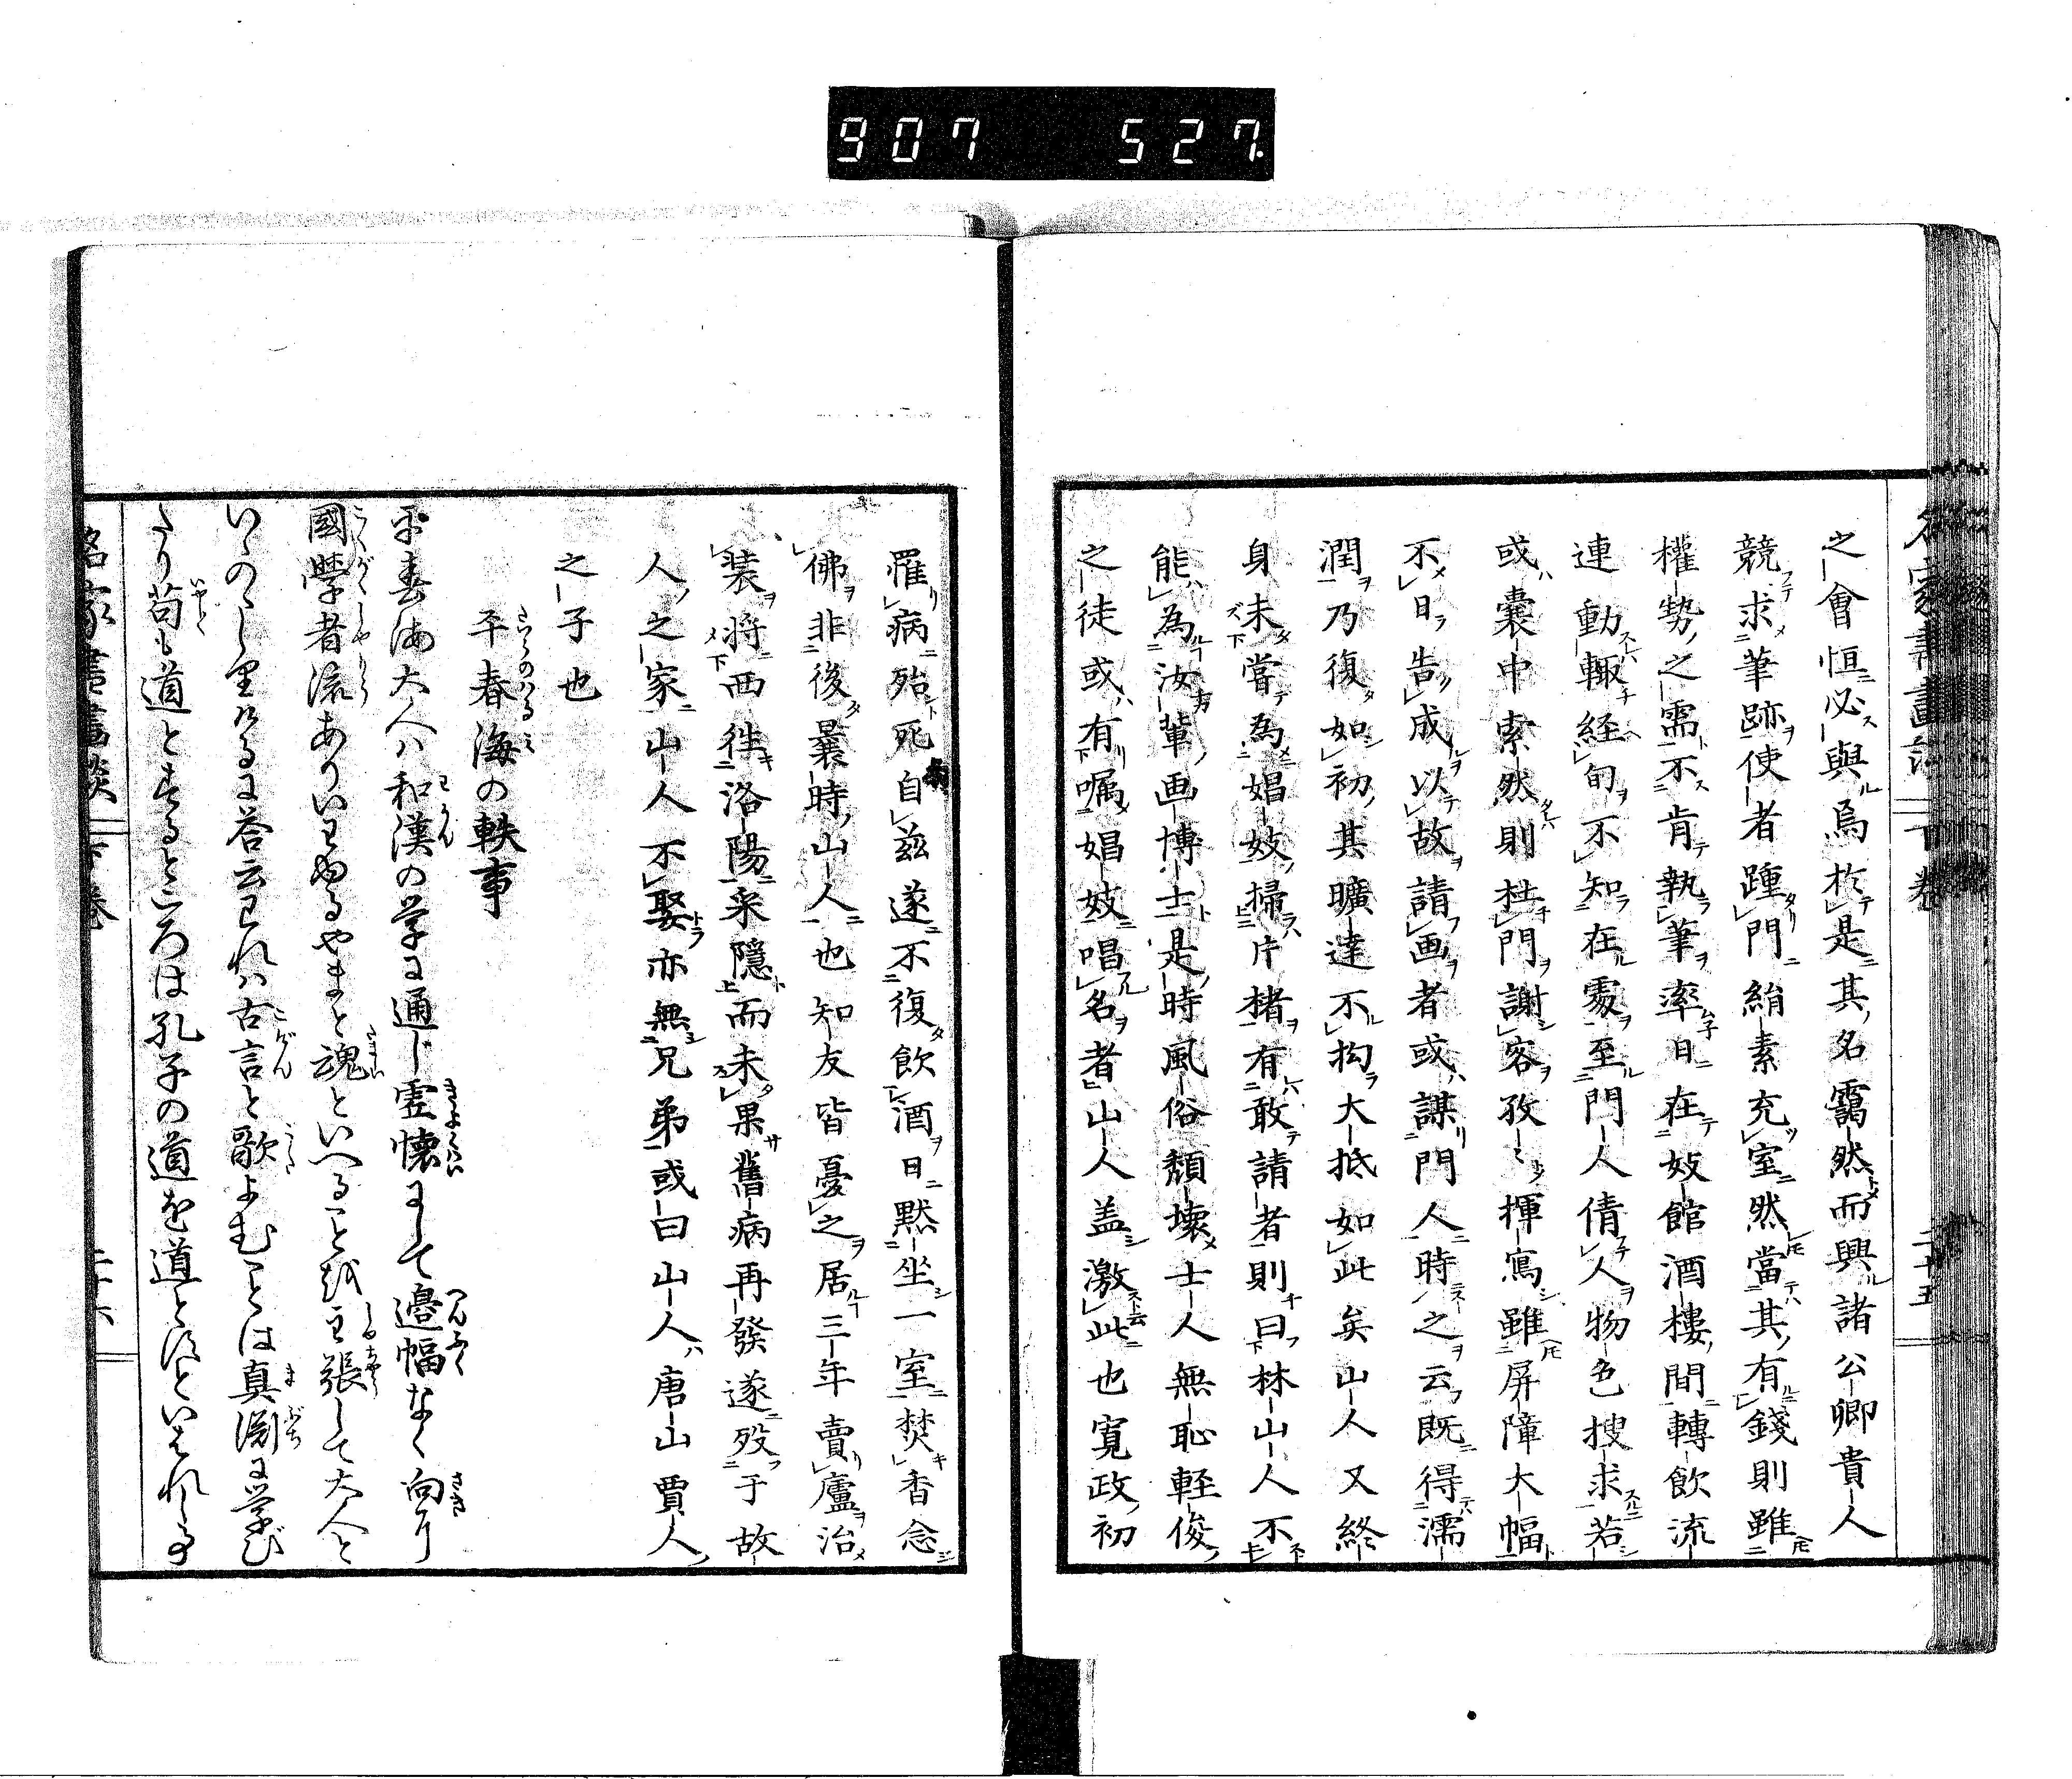 907 527.
之會恒必與焉於是其名靄然而興諸公卿貴人
競求筆跡使者踵門絹素充室然當其有錢則雖
權勢之需不肯執筆率日在妓館酒樓間轉飲流
連動輙経旬不知在處至門人倩人物色捜求若
或囊中索然則杜門謝客孜〻揮寫雖屏障大幅
不日告成以故請画者或謀門人時之云既得濡
潤乃復如初其曠達不拘大抵如此矣山人又終
身未嘗為娼妓掃片楮有敢請者則曰林山人不
能為汝輩画博士是時風俗頽壊士人無恥軽俊
之徒或有嘱娼妓唱名者山人盖激此也寛政初
羅病殆死自茲遂不復飲酒日黙坐一室焚香念
佛非後曩時山人也知友皆憂之居三年賣廬治
装将西徃洛陽采隱而未果舊病再發遂歿于故
人之家山人不娶亦無兄弟或曰山人唐山賈人
之子也
平春海の軼事
平春海大人ハ和漢の学に通じ虚懐にして邊幅なく向に
國學者流ありいわゆるやまと魂といへることを主張して大人と
いひのゝしりけるに答云われハ古言と歌よむことは真淵に学び
たり苟も道とするところは孔子の道を道とすといはれし事
名家書畫談 下巻 二十六